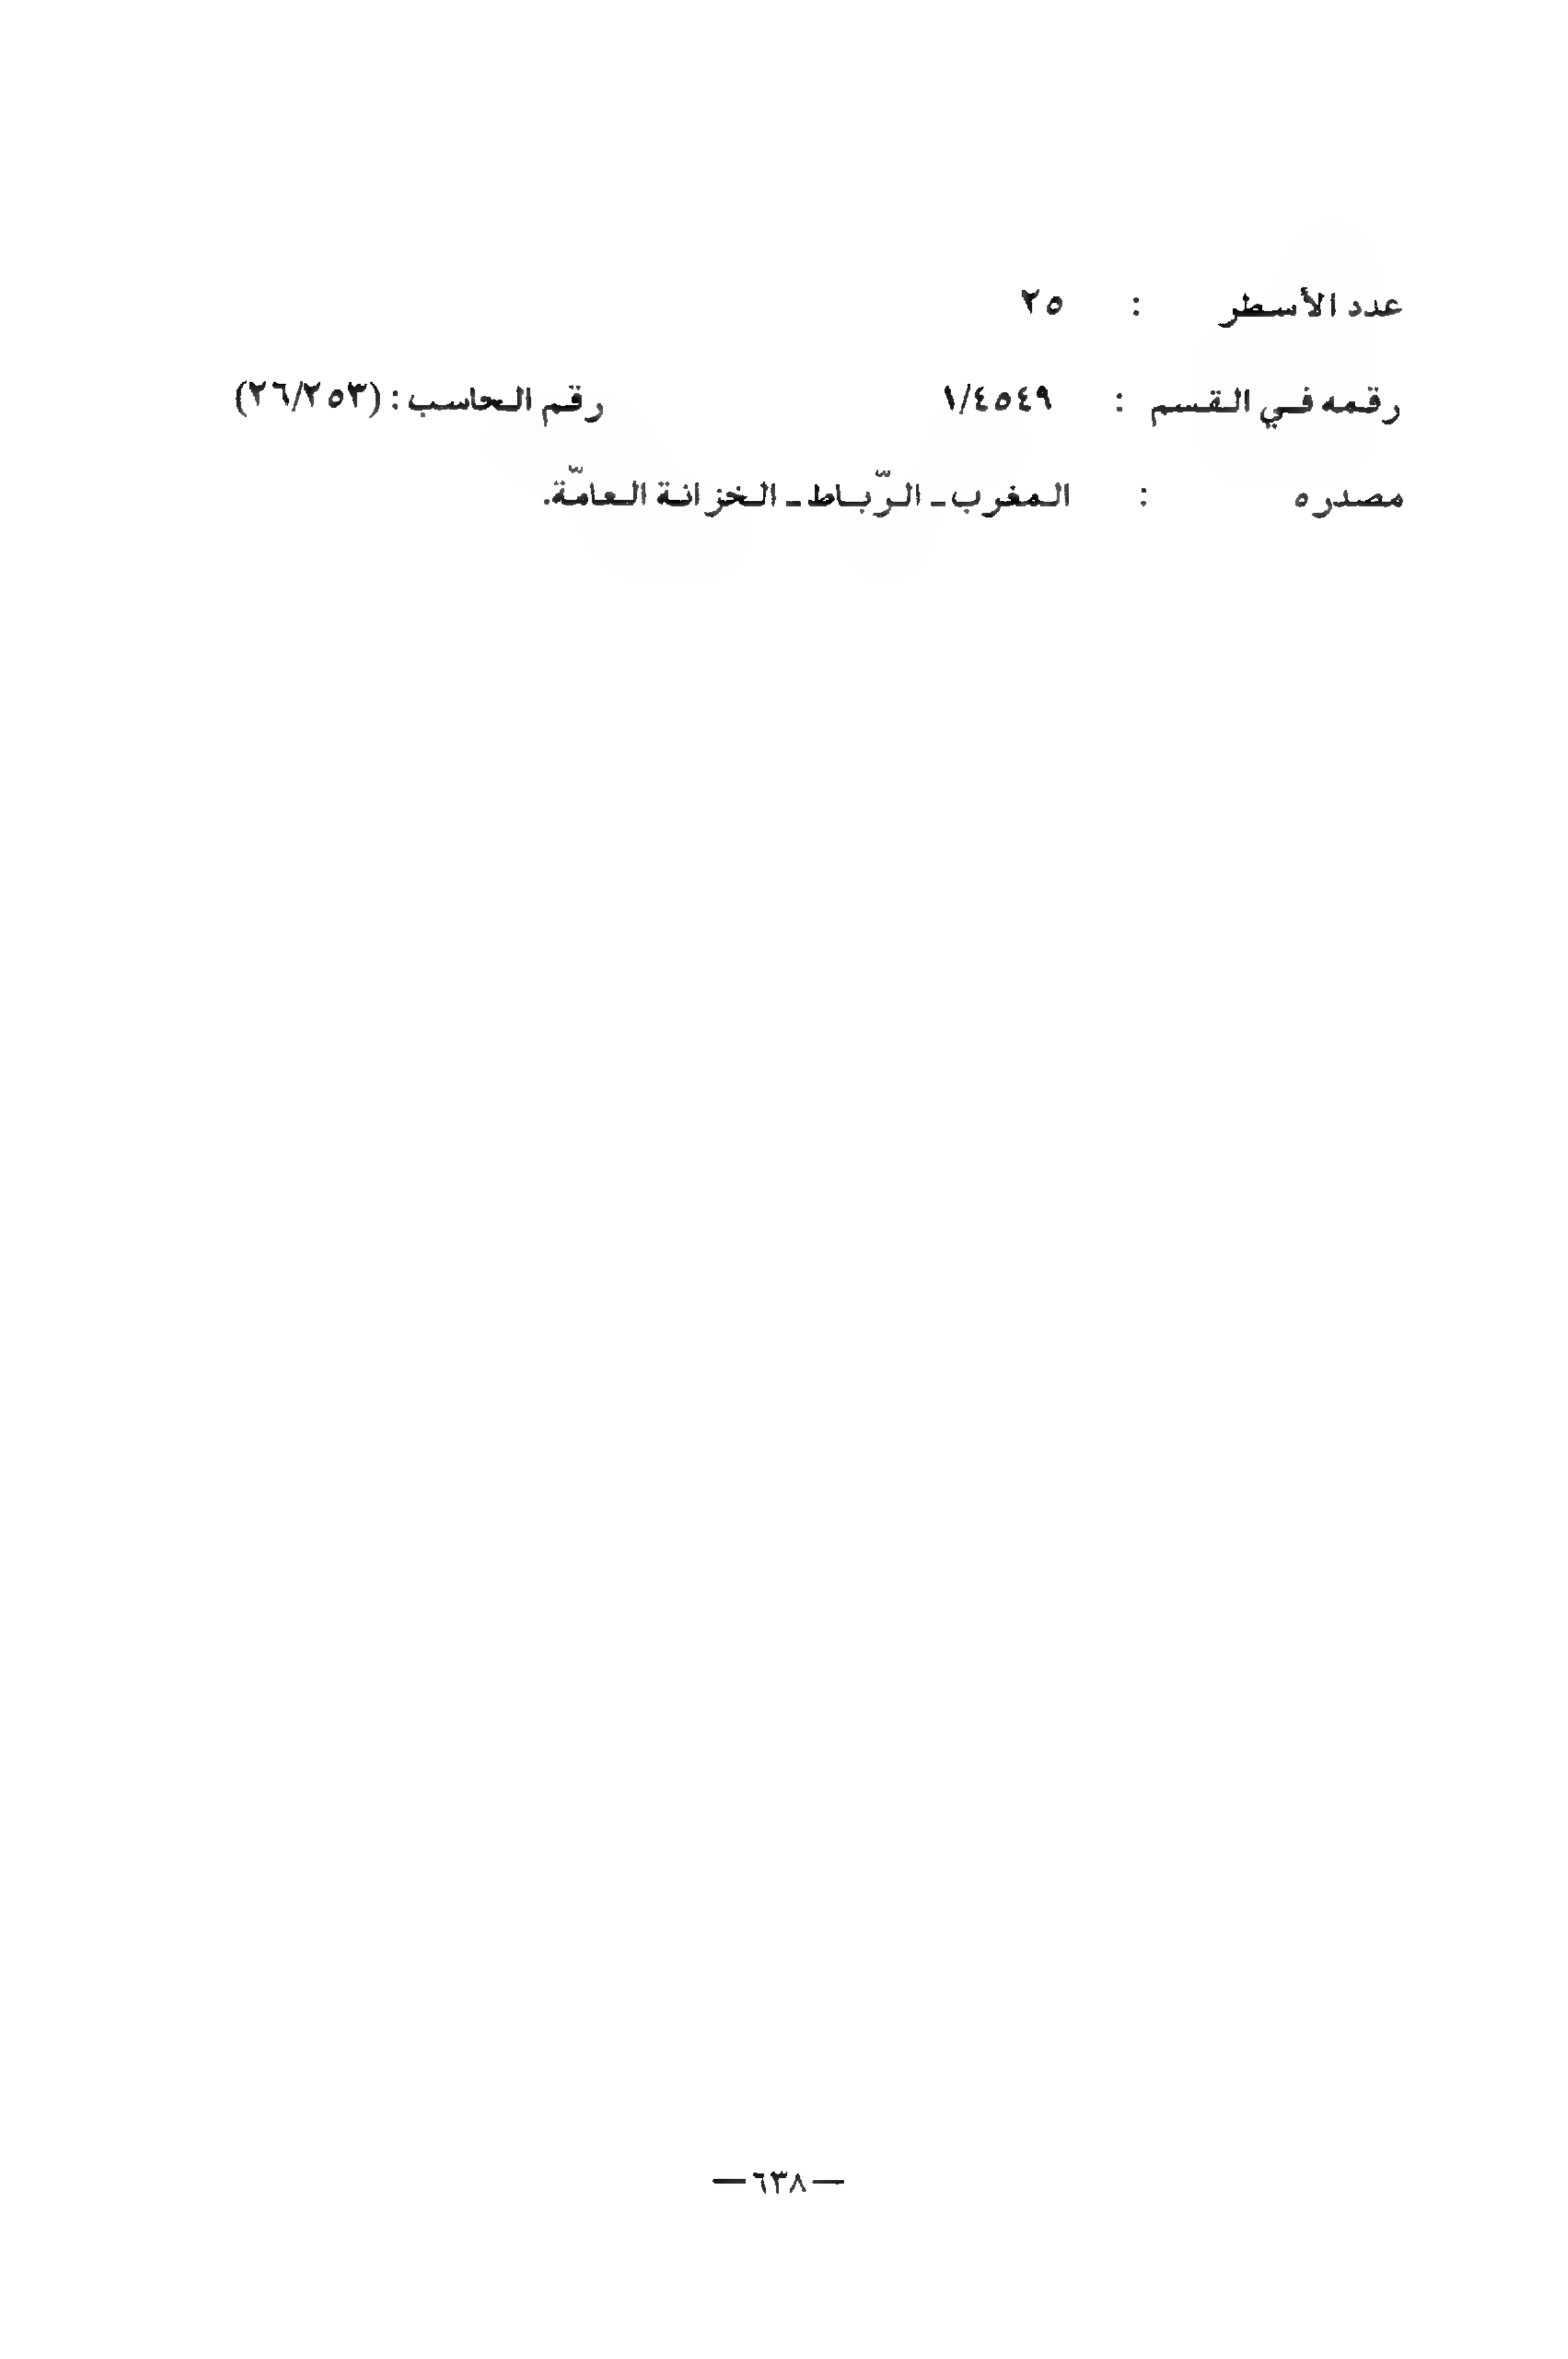 عدد الأسطر : ٢٥
رقمه في القسم : ١/٤٥٤٩ رقم الحاسب : (٢٦/٢٥٣)
مصدره : المغرب ـ الرّباط ـ الخزانة العامّة.
— ٦٣٨ —